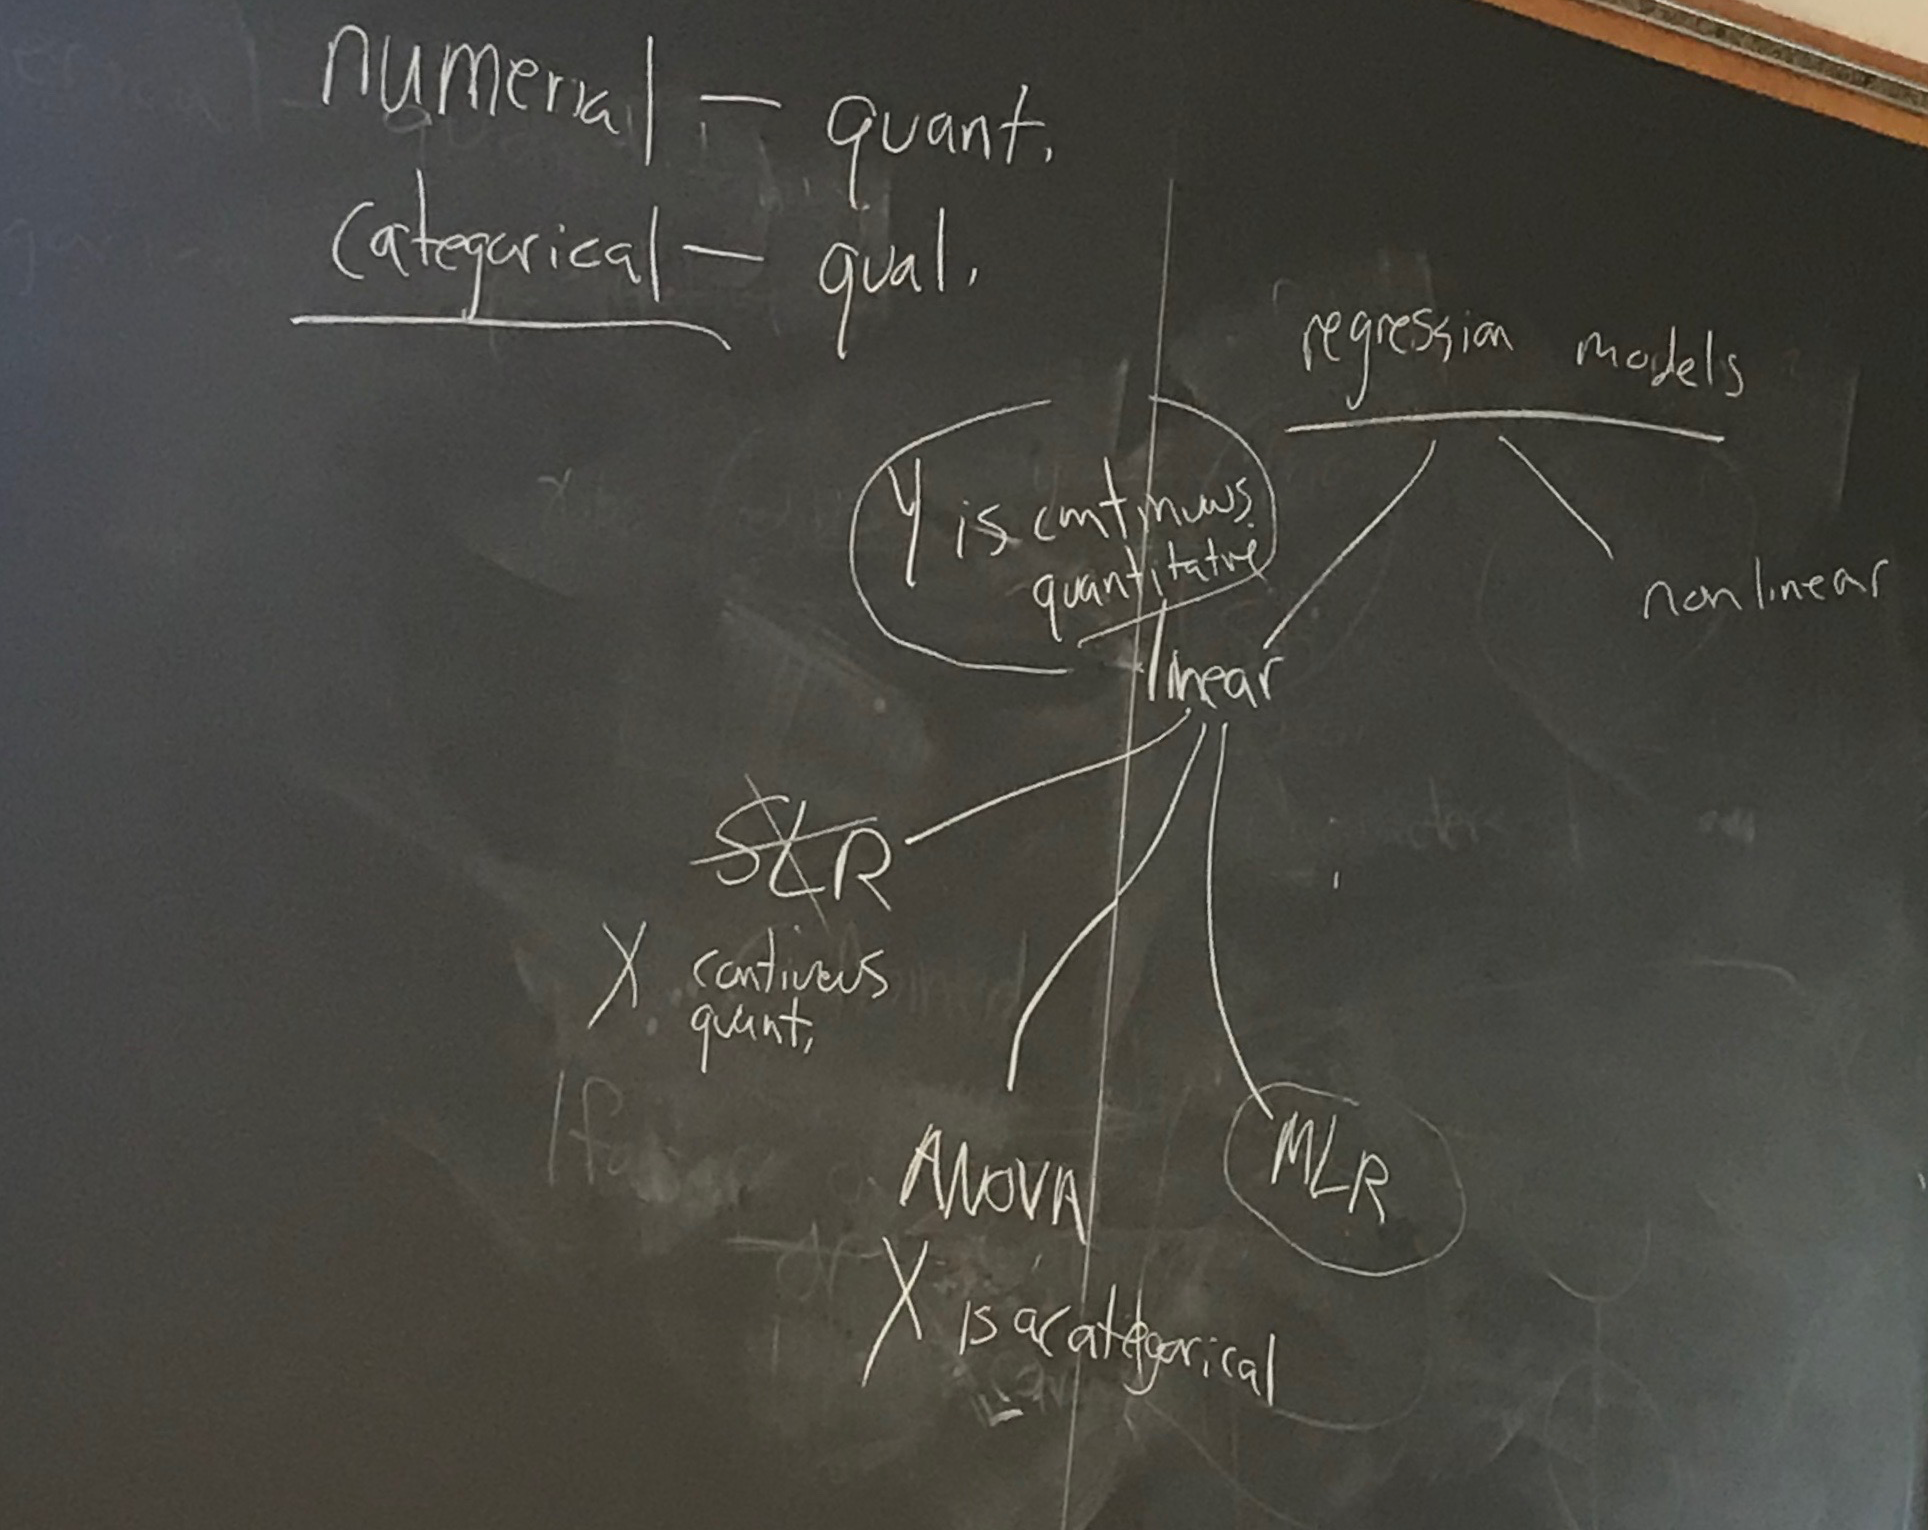 numerical — quant.
categorical — qual.
regression models
Y is continuous
quantitative
nonlinear
linear
SLR
X continuous
quant.
ANOVA
MLR
X is a categorical